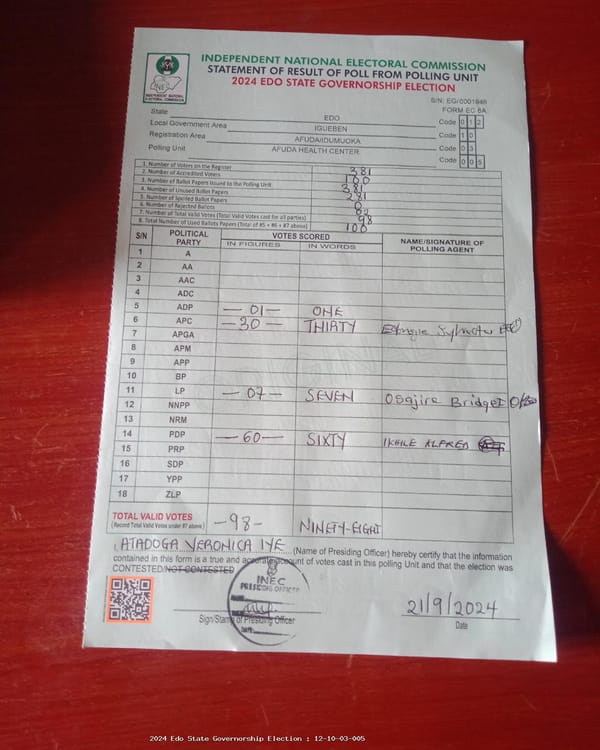 INDEPENDENT NATIONAL ELECTORAL COMMISSION
STATEMENT OF RESULT OF POLL FROM POLLING UNIT
2024 EDO STATE GOVERNORSHIP ELECTION
INEC
INDEPENDENT NATIONAL ELECTORAL COMMISSION
S/N: EG/0001846
FORM EC 8A
State EDO Code 0 1 2
Local Government Area IGUEBEN Code 1 0
Registration Area AFUDA/IDUMUOKA Code 0 3
Polling Unit AFUDA HEALTH CENTER Code 0 0 5
1. Number of Voters on the Register 381
2. Number of Accredited Voters 100
3. Number of Ballot Papers Issued to the Polling Unit 381
4. Number of Unused Ballot Papers 281
5. Number of Spoiled Ballot Papers 0
6. Number of Rejected Ballots 02
7. Number of Total Valid Votes (Total Valid Votes cast for all parties) 98
8. Total Number of Used Ballots Papers (Total of #5 + #6 + #7 above) 100
S/N POLITICAL PARTY VOTES SCORED NAME/SIGNATURE OF POLLING AGENT
IN FIGURES IN WORDS
1 A
2 AA
3 AAC
4 ADC
5 ADP —01— ONE
6 APC —30— THIRTY
7 APGA
8 APM
9 APP
10 BP
11 LP —07— SEVEN Osajire Bridget
12 NNPP
13 NRM
14 PDP —60— SIXTY IKHILE ALFRED
15 PRP
16 SDP
17 YPP
18 ZLP
TOTAL VALID VOTES -98- NINETY-EIGHT
(Record Total Valid Votes under #7 above)
I, ATADOGA VERONICA IYE (Name of Presiding Officer) hereby certify that the information
contained in this form is a true and accurate account of votes cast in this polling Unit and that the election was
CONTESTED/NOT CONTESTED
INEC
PRESIDING OFFICER
DATE
Sign/Stamp of Presiding Officer
21/9/2024
Date
2024 Edo State Governorship Election : 12-10-03-005